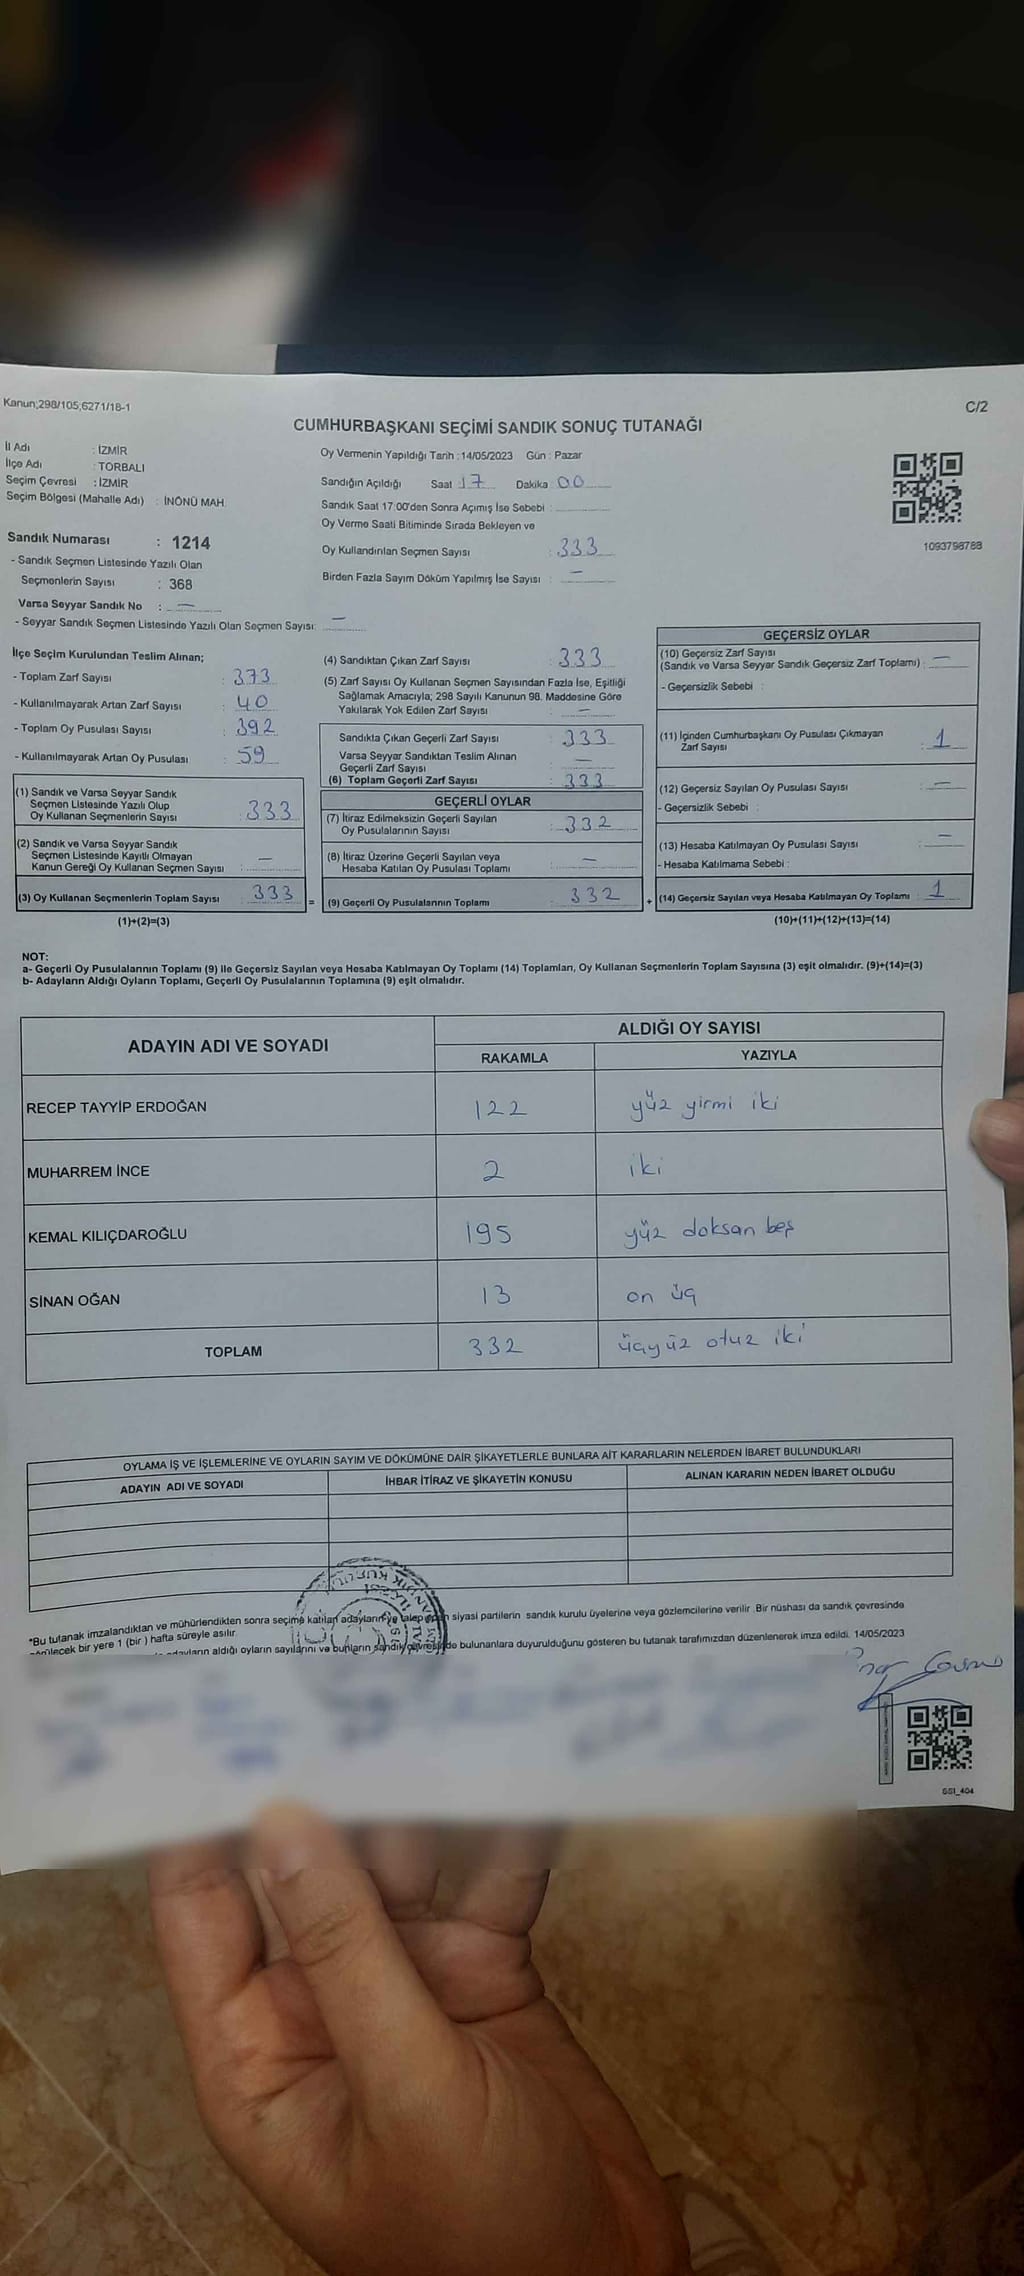 Kanun;298/105;6271/18-1
C/2
CUMHURBAŞKANI SEÇİMİ SANDIK SONUÇ TUTANAĞI
İl Adı : İZMİR
İlçe Adı : TORBALI
Seçim Çevresi : İZMİR
Seçim Bölgesi (Mahalle Adı) : İNÖNÜ MAH.
Sandık Numarası : 1214
- Sandık Seçmen Listesinde Yazılı Olan
Seçmenlerin Sayısı : 368
Varsa Seyyar Sandık No : —
- Seyyar Sandık Seçmen Listesinde Yazılı Olan Seçmen Sayısı: —
Oy Vermenin Yapıldığı Tarih : 14/05/2023 Gün : Pazar
Sandığın Açıldığı Saat : 17 Dakika : 00
Sandık Saat 17:00'den Sonra Açımış İse Sebebi :
Oy Verme Saati Bitiminde Sırada Bekleyen ve
Oy Kullandırılan Seçmen Sayısı : 333
Birden Fazla Sayım Döküm Yapılmış İse Sayısı : —
1093798788
İlçe Seçim Kurulundan Teslim Alınan;
- Toplam Zarf Sayısı : 373
- Kullanılmayarak Artan Zarf Sayısı : 40
- Toplam Oy Pusulası Sayısı : 392
- Kullanılmayarak Artan Oy Pusulası : 59
(1) Sandık ve Varsa Seyyar Sandık
Seçmen Listesinde Yazılı Olup
Oy Kullanan Seçmenlerin Sayısı : 333
(2) Sandık ve Varsa Seyyar Sandık
Seçmen Listesinde Kayıtlı Olmayan
Kanun Gereği Oy Kullanan Seçmen Sayısı : —
(3) Oy Kullanan Seçmenlerin Toplam Sayısı : 333
(1)+(2)=(3)
(4) Sandıktan Çıkan Zarf Sayısı : 333
(5) Zarf Sayısı Oy Kullanan Seçmen Sayısından Fazla İse, Eşitliği
Sağlamak Amacıyla; 298 Sayılı Kanunun 98. Maddesine Göre
Yakılarak Yok Edilen Zarf Sayısı : —
Sandıkta Çıkan Geçerli Zarf Sayısı : 333
Varsa Seyyar Sandıktan Teslim Alınan
Geçerli Zarf Sayısı : —
(6) Toplam Geçerli Zarf Sayısı : 333
GEÇERLİ OYLAR
(7) İtiraz Edilmeksizin Geçerli Sayılan
Oy Pusulalarının Sayısı : 332
(8) İtiraz Üzerine Geçerli Sayılan veya
Hesaba Katılan Oy Pusulası Toplamı : —
(9) Geçerli Oy Pusulalarının Toplamı : 332
GEÇERSİZ OYLAR
(10) Geçersiz Zarf Sayısı
(Sandık ve Varsa Seyyar Sandık Geçersiz Zarf Toplamı) : —
- Geçersizlik Sebebi :
(11) İçinden Cumhurbaşkanı Oy Pusulası Çıkmayan
Zarf Sayısı : 1
(12) Geçersiz Sayılan Oy Pusulası Sayısı : —
- Geçersizlik Sebebi :
(13) Hesaba Katılmayan Oy Pusulası Sayısı : —
- Hesaba Katılmama Sebebi :
(14) Geçersiz Sayılan veya Hesaba Katılmayan Oy Toplamı : 1
(10)+(11)+(12)+(13)=(14)
NOT:
a- Geçerli Oy Pusulalarının Toplamı (9) ile Geçersiz Sayılan veya Hesaba Katılmayan Oy Toplamı (14) Toplamları, Oy Kullanan Seçmenlerin Toplam Sayısına (3) eşit olmalıdır. (9)+(14)=(3)
b- Adayların Aldığı Oyların Toplamı, Geçerli Oy Pusulalarının Toplamına (9) eşit olmalıdır.
ADAYIN ADI VE SOYADI ALDIĞI OY SAYISI
RAKAMLA YAZIYLA
RECEP TAYYİP ERDOĞAN 122 yüz yirmi iki
MUHARREM İNCE 2 iki
KEMAL KILIÇDAROĞLU 195 yüz doksan beş
SİNAN OĞAN 13 on üç
TOPLAM 332 üçyüz otuz iki
OYLAMA İŞ VE İŞLEMLERİNE VE OYLARIN SAYIM VE DÖKÜMÜNE DAİR ŞİKAYETLERLE BUNLARA AİT KARARLARIN NELERDEN İBARET BULUNDUKLARI
ADAYIN ADI VE SOYADI İHBAR İTİRAZ VE ŞİKAYETİN KONUSU ALINAN KARARIN NEDEN İBARET OLDUĞU
*Bu tutanak imzalandıktan ve mühürlendikten sonra seçime katılan adayların ve talep eden siyasi partilerin sandık kurulu üyelerine veya gözlemcilerine verilir. Bir nüshası da sandık çevresinde
görülecek bir yere 1 (bir) hafta süreyle asılır.
adayların aldığı oyların sayılarını ve bunların sandık çevresinde bulunanlara duyurulduğunu gösteren bu tutanak tarafımızdan düzenlenerek imza edildi. 14/05/2023
SS1_404